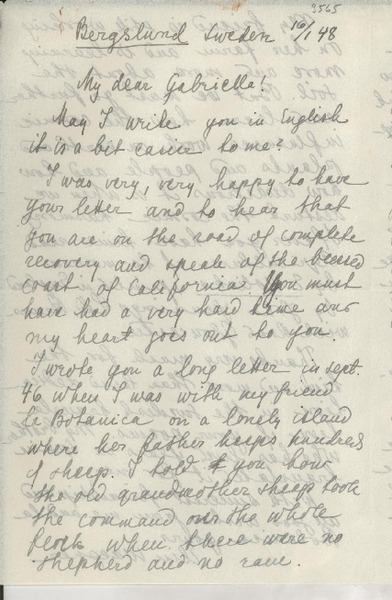 3565
Bergslund Sweden 16/1 48
My dear Gabriella!
May I write you in English
it is a bit easier to me?
I was very, very happy to have
your letter and to hear that
you are on the road of complete
recovery and speak of the blessed
coast of California. You must
have had a very hard time and
my heart goes out to you.
I wrote you a long letter in sept.
46 when I was with my friend
la Botanica on a lonely island
where her father keeps hundreds
of sheep. I told you how
the old grandmother sheep took
the command over the whole
flock when there were no
shepherd and no ram.